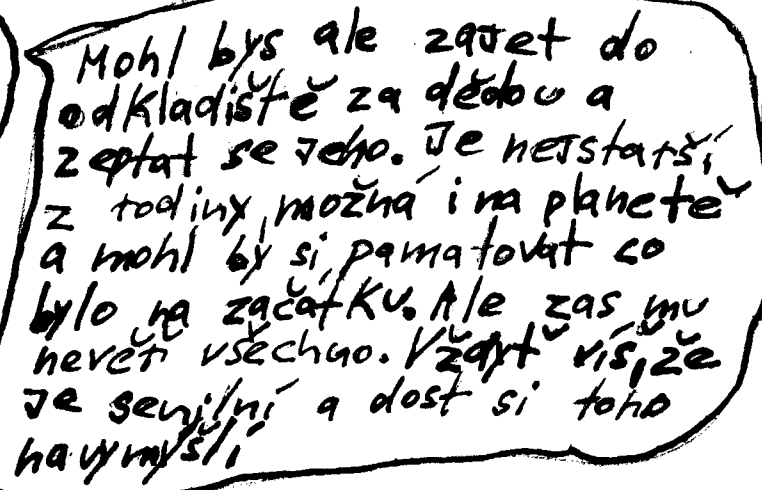 Mohl bys ale zajet do
odkladiště za dědou a
zeptat se jeho. Je nejstarší
z rodiny, možná i na planetě
a mohl by si pamatovat co
bylo na začátku. Ale zas mu
nevěř všechno. Vždyť víš, že
je senilní a dost si toho
navymýšlí